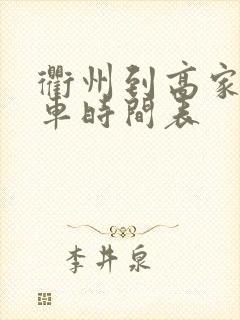 衢州到高家
車時間表
李井泉